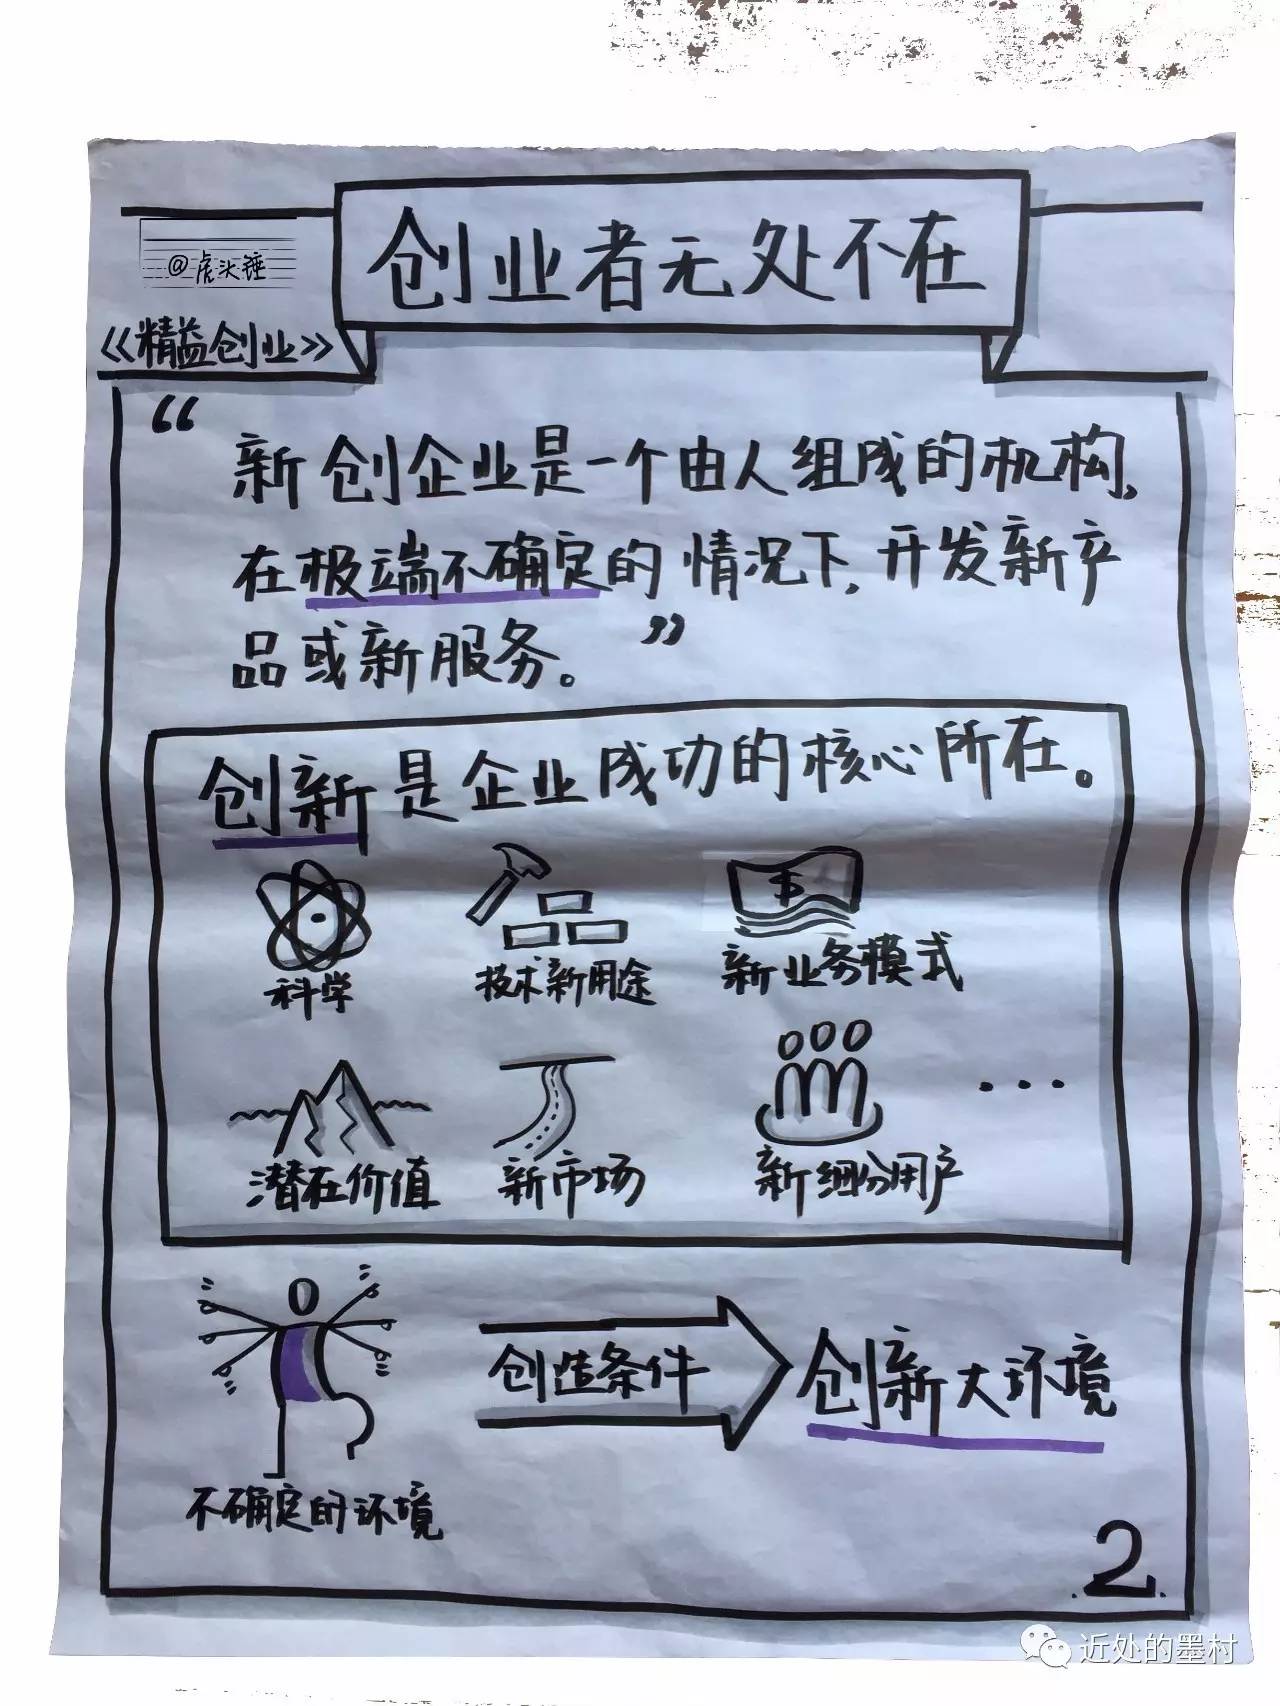 创业者无处不在
@虎头锤
《精益创业》
“
新创企业是一个由人组成的机构，
在极端不确定的情况下，开发新产
品或新服务。”
创新是企业成功的核心所在。
科学
技术新用途
新业务模式
潜在价值
新市场
新细分用户
...
创造条件
创新大环境
不确定的环境
2
近处的墨村